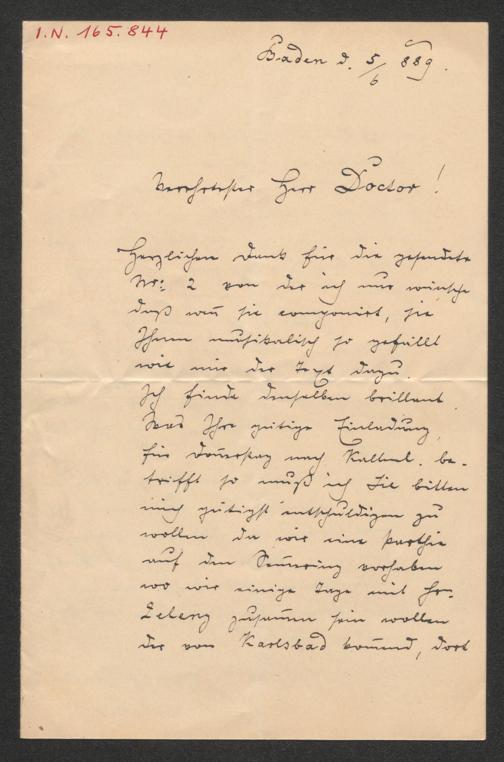 I.N. 165.844
Baden d. 5/6 889.
Verehrtester Herr Doctor!
Herzlichen Dank für die gesendete
Nr: 2 von der ich nur wünsche
daß wen̅ sie componirt, sie
Ihnen musikalisch so gefällt
wie mir der Text dazu.
Ich finde denselben brillant.
Was Ihre gütige Einladung
für Don̅erstag nach Kaltenl. be-
trifft so muß ich Sie bitten
mich gütigst entschuldigen zu
wollen da wir eine Parthie
auf den Sem̅ering vorhaben
wo wir einige Tage mit Hr.
Zeleny zusam̅en sein wollen
der von Karlsbad kom̅end, dort